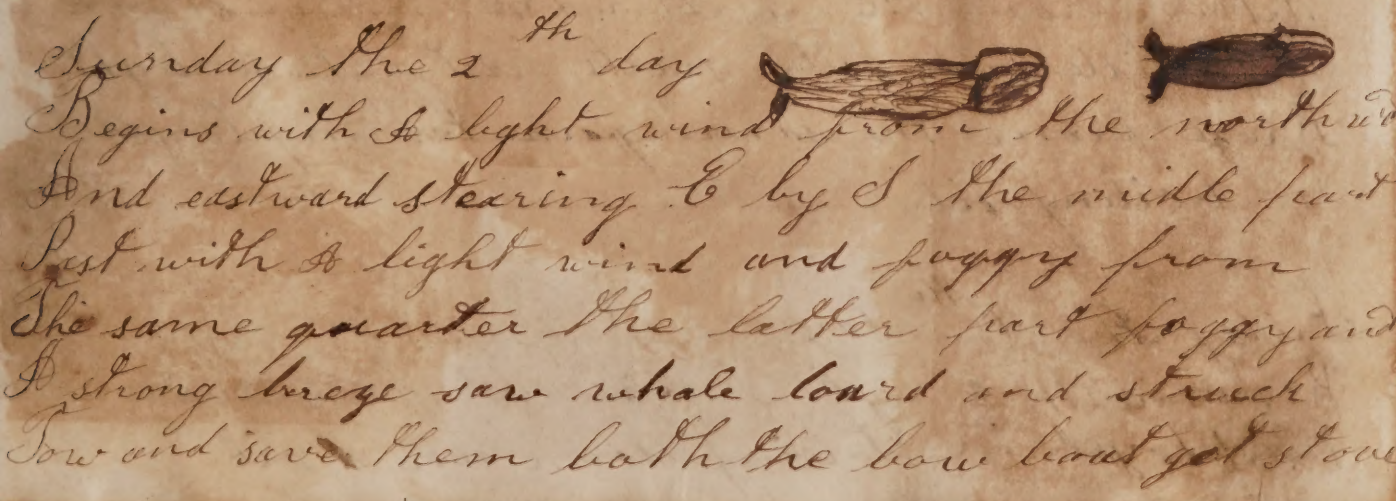 Sunday the 2th day
Begins with A light wind from the northwd
And eastward stearing E by S the midle part
Past with A light wind and foggy from
The same quarter the latter part foggy and
A strong breze saw whale loard and struck
Tow and save them both the bow boat got stove